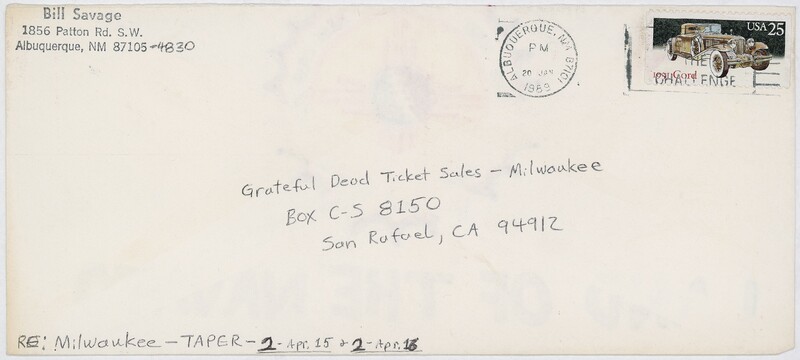 Bill Savage
1856 Patton Rd. S.W.
Albuquerque, NM 87105-4830
ALBUQUERQUE, NM 87101
PM
20 JAN
1989
USA 25
THE
CHALLENGE
1931 Cord
Grateful Dead Ticket Sales - Milwaukee
Box C-S 8150
San Rafael, CA 94912
RE: Milwaukee - TAPER - 2-Apr. 15 & 2-Apr. 16